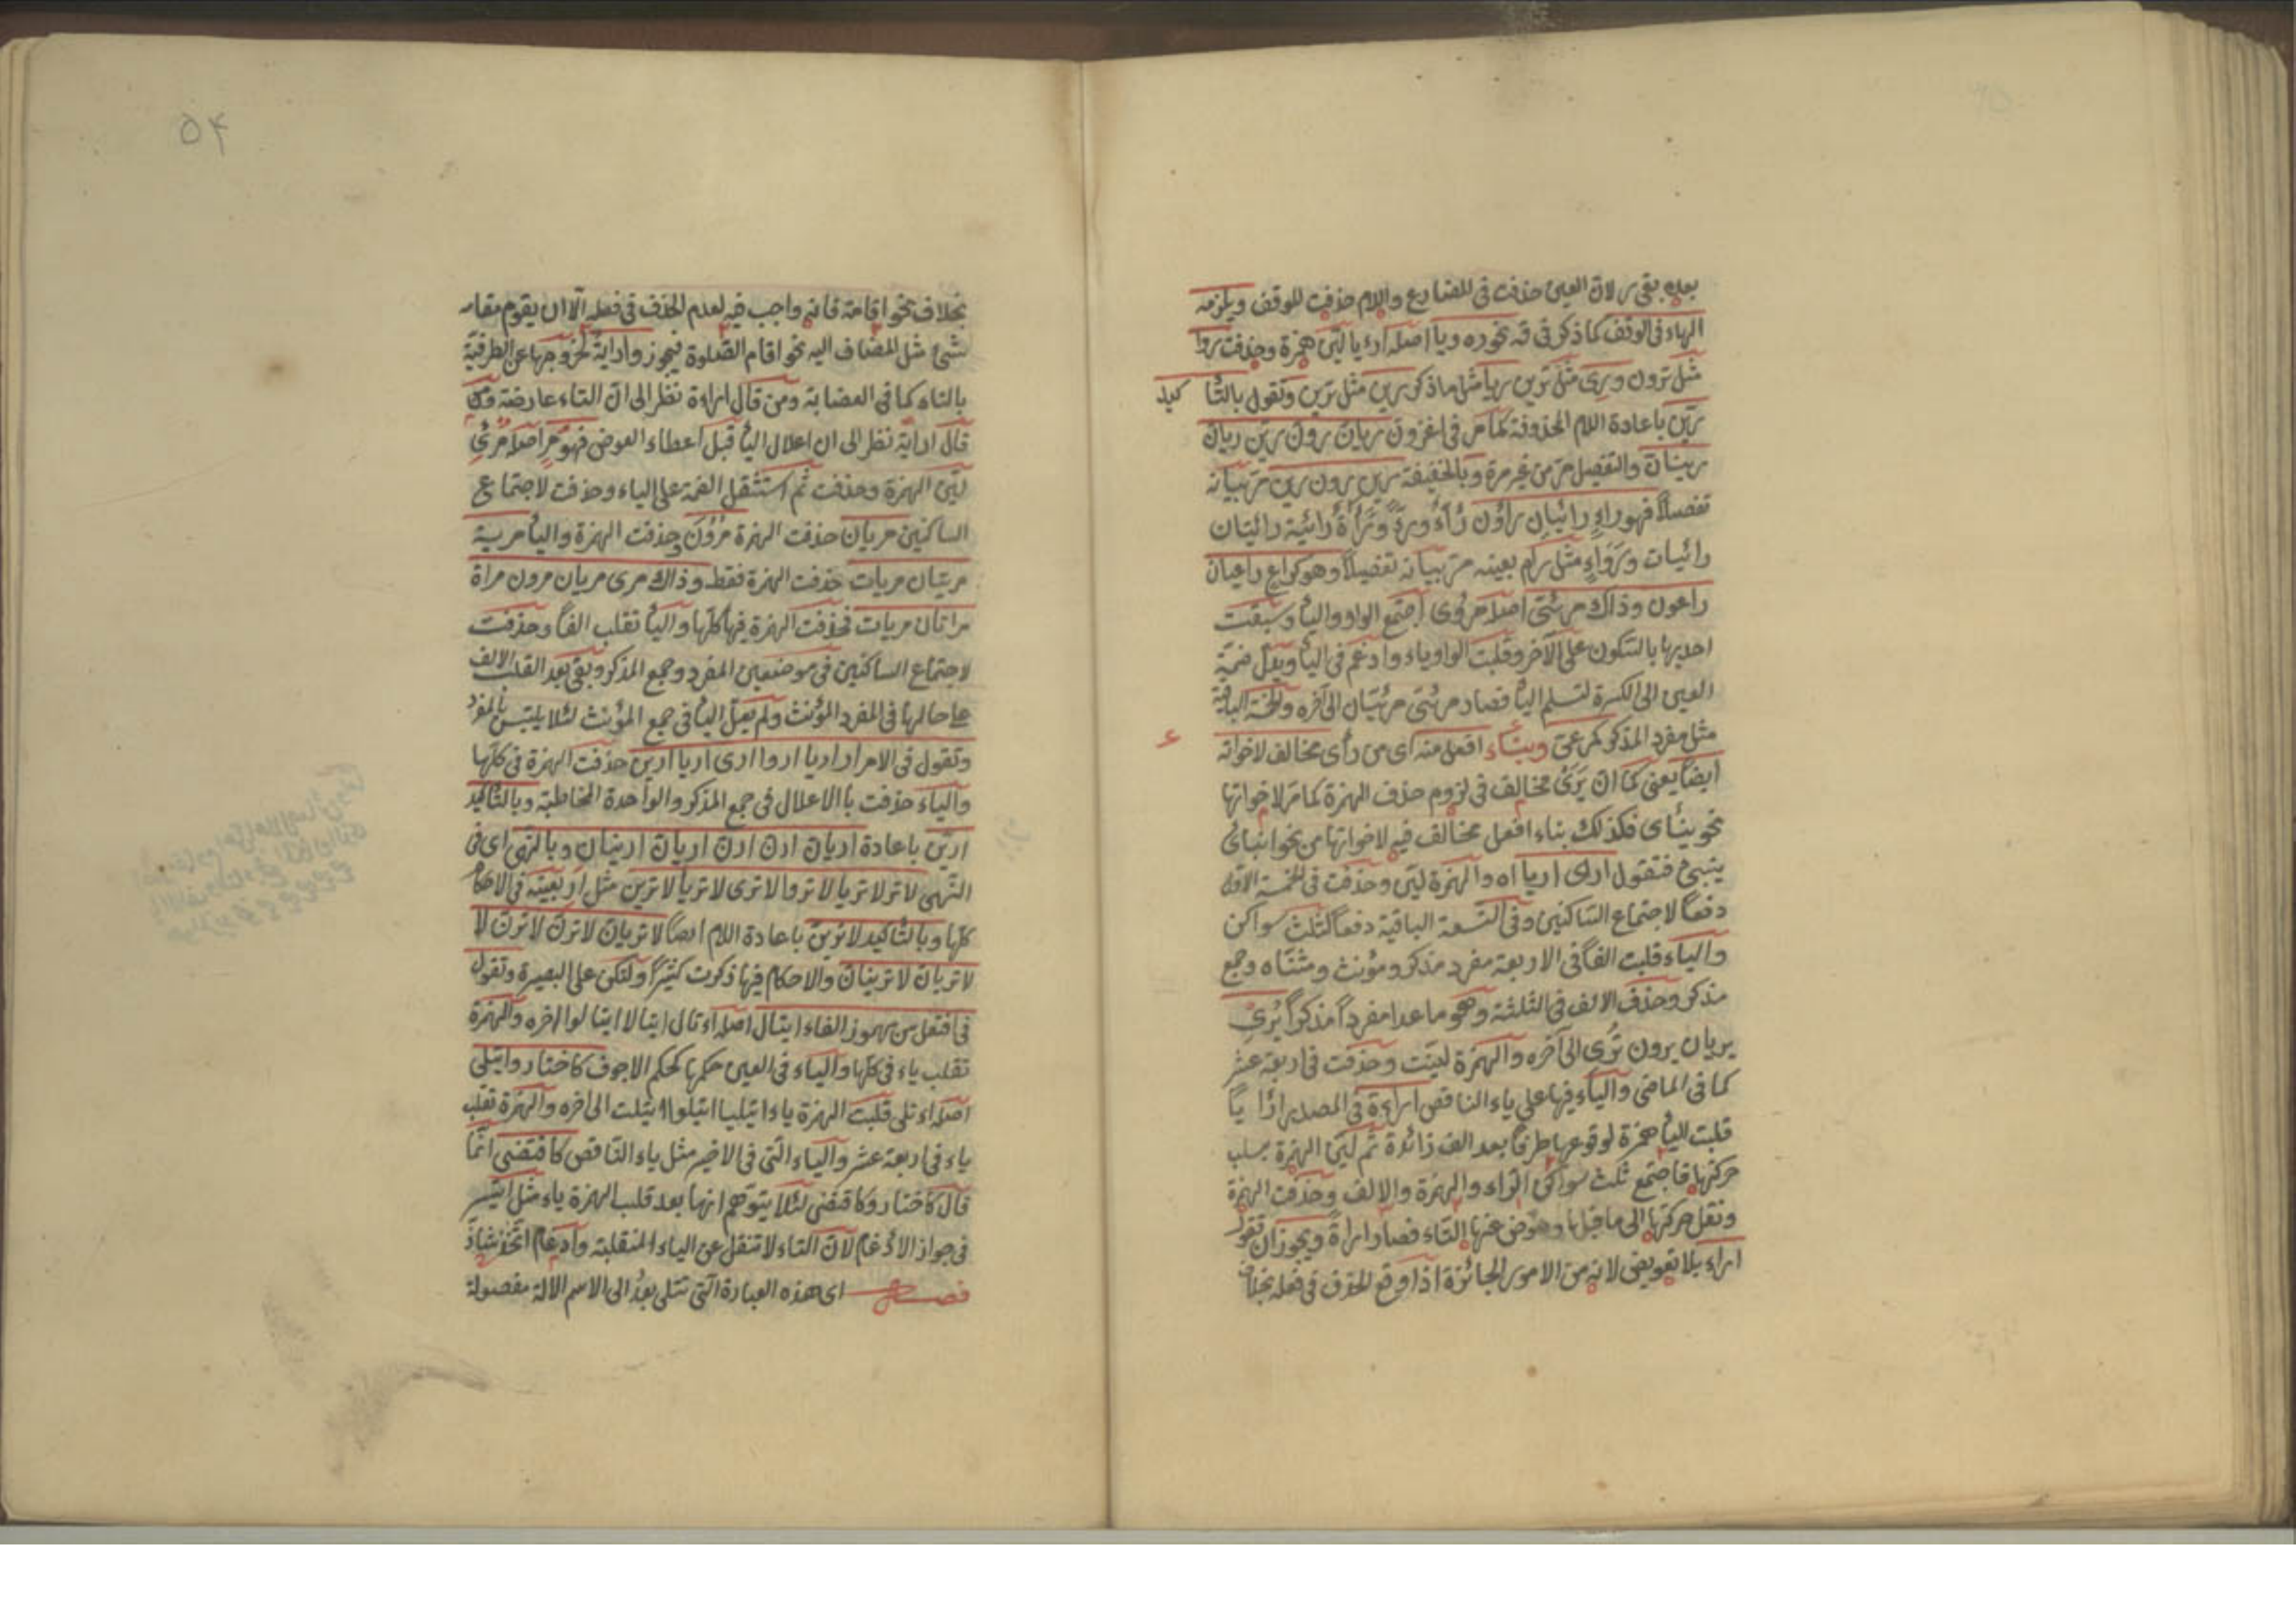 بعده بقى ر لان العين حذفت فى المضارع واللام حذفت للوقف ويلزمه
الهاء فى الوقف كما ذكر فى قه نحو ره وريا اصله ارءيا لين همزة وحذفت روا
مثل ترون ورى مثل ترين ريا مثل ما ذكر رين مثل ترين وتقول بالتا كيد
رين باعادة اللام المحذوفة كما مر فى اغزون ريان رون رين ريان
رينان والتفصيل مر من غير مرة وبالخفيفة رين رون رين مر بيانه
تفصيلا فهو راء رائيان راؤن رائية رائيتان
رائيات ورواء مثل رام بعينه مر بيانه تفصيلا وهو كراع راعيان
راعون وذاك مرئى اصله مرؤى اجتمع الواو واليا وسبقت
احديهما بالسكون على الآخر وقلبت الواو ياء وادغم فى اليا وبدل ضمة
العين الى الكسرة لتسلم اليا فصار مرئى مرئيان الى آخره والخمسة الباقية
مثل مفرد المذكر كمرعى وبناء افعل منه اى من رأى مخالف لاخواته
ايضا يعنى كما ان يرى مخالف فى لزوم حذف الهمزة كما مر لاخواتها
نحو ينأى فكذلك بناء افعل مخالف فيه لاخواتها من نحو انبأى
ينبئ فتقول ارى اريا اه والهمزة لين وحذفت فى الخمسة الاول
دفعا لاجتماع الساكنين وفى التسعة الباقية دفعا لثلث سواكن
والياء قلبت الفا فى الاربعة مفرد مذكر ومؤنث ومثناه وجمع
مذكر وحذف الالف فى الثلثة وهو ما عدا مفردا مذكرا يرى
يريان يرون ترى الى آخره والهمزة لينت وحذفت فى اربعة عشر
كما فى الماضى والياء فيها على ياء الناقص اراءة فى المصدر ارايا
قلبت اليا همزة لوقوعها طرفا بعد الف زائدة ثم لين الهمزة بسلب
حركتها فاجتمع ثلث سواكن الراء والهمزة والالف وحذفت الهمزة
ونقل حركتها الى ما قبلها وعوض عنها التاء فصار اراءة ويجوز ان تقول
اراء بلا تعويض لانه من الامور الجائزة اذا وقع الحذف فى فعله بخلاف
٥٤
بخلاف نحو اقامة فانه واجب فيه لعدم الحذف فى فعله الا ان يقوم مقامه
شئ مثل المضاف اليه نحو اقام الصلوة فيجوز واراية لخروجها عن الطرفية
بالتاء كما فى العضاية ومن قال اراءة نظر الى ان التاء عارضة ومن
قال اراية نظر الى ان اعلال اليا قبل اعطاء العوض فهو مر اصله مرئى
لين الهمزة وحذفت ثم استثقل الضمة على الياء وحذفت لاجتماع
الساكنين مريان حذفت الهمزة مرون حذفت الهمزة واليا مرية
مريتان مريات حذفت الهمزة فقط وذاك مرى مريان مرون مراة
مراتان مريات فحذفت الهمزة فيها كلها واليا تقلب الفا وحذفت
لاجتماع الساكنين فى موضعين المفرد وجمع المذكر وبقى بعد القلب الالف
على حالها فى المفرد المؤنث ولم يعل اليا فى جمع المؤنث لئلا يلتبس بالمفرد
وتقول فى الامر ار اريا اروا ارى اريا ارين حذفت الهمزة فى كلها
والياء حذفت با الاعلال فى جمع المذكر والواحدة المخاطبة وبالتأكيد
ارين باعادة اريان ارن ارن اريان ارينان وبالنهى اى فى
النهى لا تر لا تريا لا تروا لا ترى لا تريا لا ترين مثل اربعيته فى الاحكام
كلها وبالتأكيد لا ترين باعادة اللام ايضا لا تريان لا ترن لا ترن لا
لا تريان لا ترينان والاحكام فيها ذكرت كثيرا ولتكن على البصيرة وتقول
فى افتعل من مهموز الفاء ايتال اصله اءتال ايتالا ايتالوا الى آخره والهمزة
تقلب ياء فى كلها والياء فى العين حكمها كحكم الاجوف كاختار وايتلى
اصله اءتلى قلبت الهمزة ياء ايتليا ايتلوا ايتلت الى اخره والهمزة تقلب
ياء فى اربعة عشر والياء التى فى الاخير مثل ياء الناقص كاقتضى انما
قال كاختار وكاقتضى لئلا يتوهم انها بعد قلب الهمزة ياء مثل ايتسر
فى جواز الادغام لان التاء لا تنقل عن الياء المنقلبة وادغام اتخذ شاذ
فصل اى هذه العبارة التى تتلى بعد الى الاسم الالة مفصولة